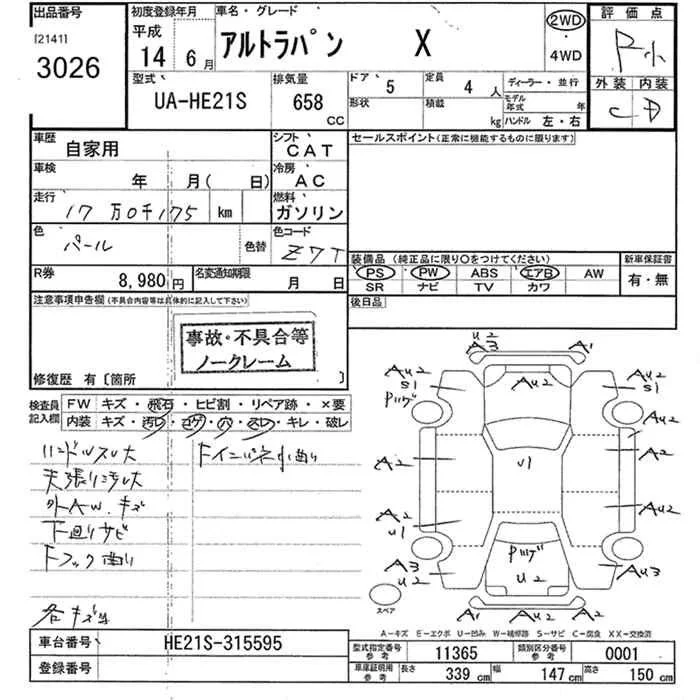 出品番号
[2141]
3026
初度登録年月
平成
14 6月
車名・グレード
アルトラパン X
2WD
・
4WD
評価点
外装 内装
C D
型式
UA-HE21S
排気量
658
CC
ドア 5
定員 4 人
ディーラー・並行
形状
積載 kg
モデル年式 年
ハンドル 左・右
車歴
自家用
シフト
CAT
車検
年 月( 日)
冷房
AC
走行
17万0千175 km
燃料
ガソリン
色
パール
色替
色コード
Z7T
R券
8,980円
名変通知期限
月 日
セールスポイント(正常に機能するものに限ります)
装備品(純正品に限り○をつけてください)
PS PW ABS エアB AW
SR ナビ TV カワ
新車保証書
有・無
後日品
注意事項申告欄(不具合内容等は具体的に記入して下さい)
事故・不具合等
ノークレーム
修復歴 有〔箇所 〕
検査員
記入欄
FW キズ・飛石・ヒビ割・リペア跡・×要
内装 キズ・汚レ・コゲ・穴・スレ・キレ・破レ
ハンドルスレ大
天張り汚れ大
外AW.キズ
下回りサビ
Fフック曲り
各キズ
U2
A3
A1
AU2
AU2
S1
AU2
S1
AU2
A2
U1
A2
A2
U1
AU2
A3
U2
U2
AU3
A1
AU2
A2
スペア
A-キズ E-エクボ U-凹み W-補修跡 S-サビ C-腐食 XX-交換済
車台番号
HE21S-315595
登録番号
型式指定番号
参考
11365
類別区分番号
参考
0001
車庫証明用
参考
長さ 339 cm
幅 147 cm
高さ 150 cm